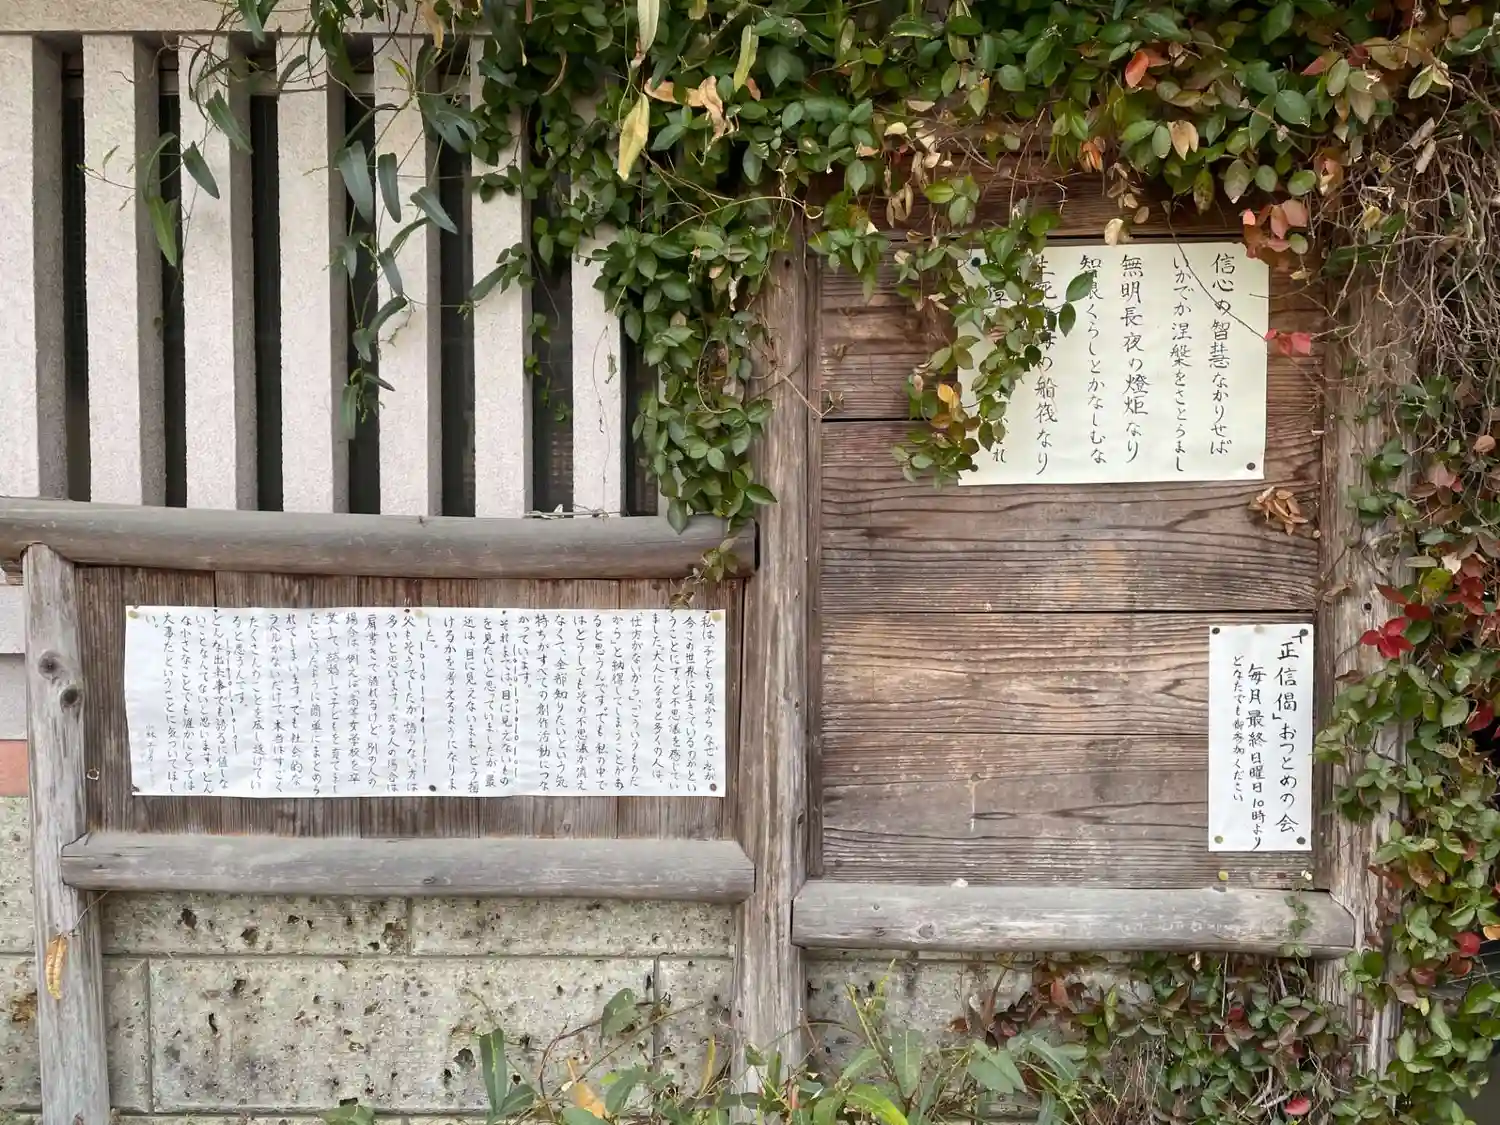 信心の智慧なかりせば
いかでか涅槃をさとらまし
無明長夜の燈炬なり
智眼くらしとかなしむな
生死の船筏なり
れ
「正信偈」おつとめの会
毎月最終日曜日10時より
どなたでも御参加ください
私は子どもの頃からなぜ
今この世界に生きているのかとい
うことにずっと不思議を感じてい
ました。大人になると多くの人は、
「仕方がないから」「こういうものだ
から」と納得してしまうことがあ
ると思うんです。でも私の中で
はどうしてもその不思議が消え
なくて、全部知りたいという気
持ちがすべての創作活動につな
がっています。
それまでは、目に見えないもの
を見たいと思っていましたが、最
近は、目に見えないまま、どう描
けるかを考えるようになりま
した。
父もそうでしたが、語らない方は
多いと思います。或る人の場合は
肩書きで語れるけど、別の人の
場合は、例えば「高等女学校を卒
業して、結婚して子どもを育てまし
た」といったように簡単にまとめら
れてしまいます。でも、社会的な
ラベルがないだけで、本当はすごく
たくさんのことを成し遂げてい
ると思うんです。
どんな出来事でも語るに値しな
いことなんてないと思います。どん
な小さなことでも誰かにとっては
大事だということに気づいてほし
い。